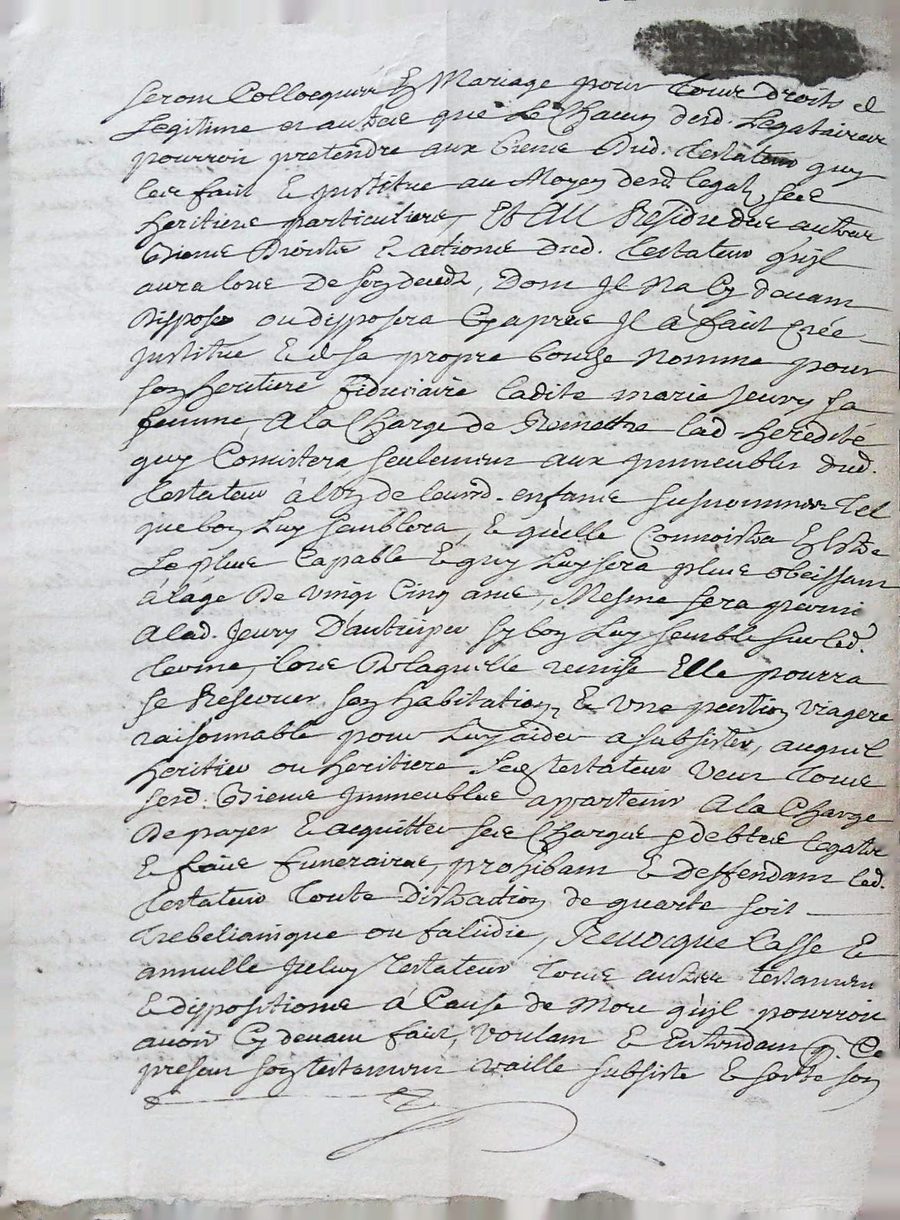 seront Collocqués En Mariage pour tous droits de
Legitime et autres que Le Chacun desd. Legataires
pourroit pretendre aux biens Dud. testateur quy
les fait & Institue au Moyen desd. legats, ses
heritiers particuliers, Et Au Residu des autres
Biens Droits & actions dud. testateur qu'jl
aura lors De son deceds, Dont Jl Na Cy devant
Disposé ou disposera Cy apres Jl a fait créé
Jnstitué & de sa propre bouche Nommé pour
son heritiere fiduciaire ladite marie Jeury sa
femme A la Charge de Remettre lad. heredité
quy Consistera seulement aux Jmmeubles dud.
testateur à l'un de leursd. enfans susnommés Tel
que bon Luy semblera, & qu'elle Connoistra Estre
Le plus Capable & quy Luy sera plus obeissant
à l'age De vingt Cinq ans, Mesme sera permis
A lad. Jeury D'anticiper sy bon Luy semble sur led.
terme, lors De laquelle remise Elle pourra
se Reserver son habitation & Une pention viagere
raisonnable pour Luy aider a subsister, auquel
heritier ou heritiere Led. testateur Veut tous
sesd. Biens Jmmeubles appartenir A la Charge
De payer & acquitter ses Charges debtes legats
& frais funeraires, prohibant & Deffendant led.
testateur Toute Distraction de quarte soit
trebelianique ou falcidie, Revocque Casse &
annulle Jceluy Testateur tous autres testamens
& dispositions à Cause de Mort qu'jl pourroit
avoir Cy devant fait, Voulant & Entendant q. Ce
present son testament vaille subsiste & sorte son